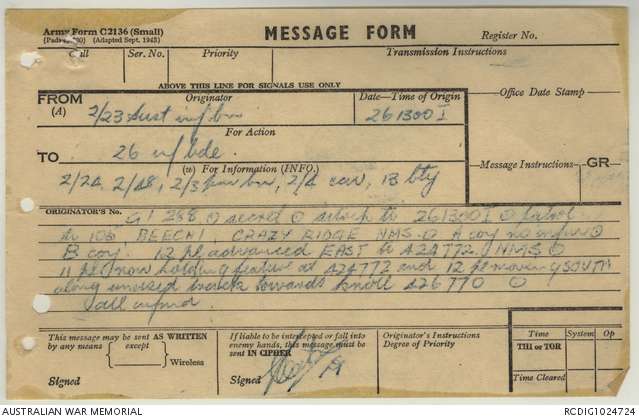 Army Form C2136 (Small)
(Adapted Sept. 1943)
MESSAGE FORM
Register No.
Call
Ser. No.
Priority
Transmission Instructions
ABOVE THIS LINE FOR SIGNALS USE ONLY
FROM
(A)
Originator
2/23 Aust inf bn
Date—Time of Origin
261300 I
Office Date Stamp
For Action
TO
26 inf bde.
(W) For Information (INFO.)
Message Instructions
GR
2/24, 2/48, 2/3 bn, 2/4 , 13 bty
ORIGINATOR'S No.
G1 288 O secret O sitrep to 261300 I O patrol
to 108 BEECH1, CRAZY RIDGE NMS. O A coy no O
B coy. 12 pl advanced EAST to 424772. NMS O
11 pl now holding feature at 424772 and 12 pl moving SOUTH
along unused track towards knoll 426770 O
all infmd.
This message may be sent AS WRITTEN
by any means
except
Wireless
Signed
If liable to be intercepted or fall into
enemy hands, this message must be
sent IN CIPHER
Signed
Originator's Instructions
Degree of Priority
Time
System
Op
THI or TOR
Time Cleared
AUSTRALIAN WAR MEMORIAL
RCDIG1024724